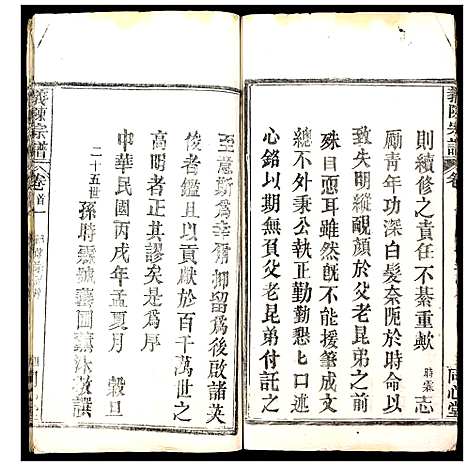 義陳宗譜 卷
則續修之責任不綦重歟 時霖 志
勵青年功深白髮奈阨於時命以
致失明縱靦顏於父老昆弟之前
殊自恧耳雖然旣不能援筆成文
總不外秉公執正勤勤懇〻口傳
心銘以期無負父老昆弟付託之
同心堂
至意斯爲幸甭抑留爲後啟諸英
俊者鑑且以貢獻於百千萬世之
高明者正其謬矣是爲序
中華民國丙戌年孟夏月 穀旦
二十五世 孫時霖號藝圃薰沐敬譔
義陳宗譜 卷首